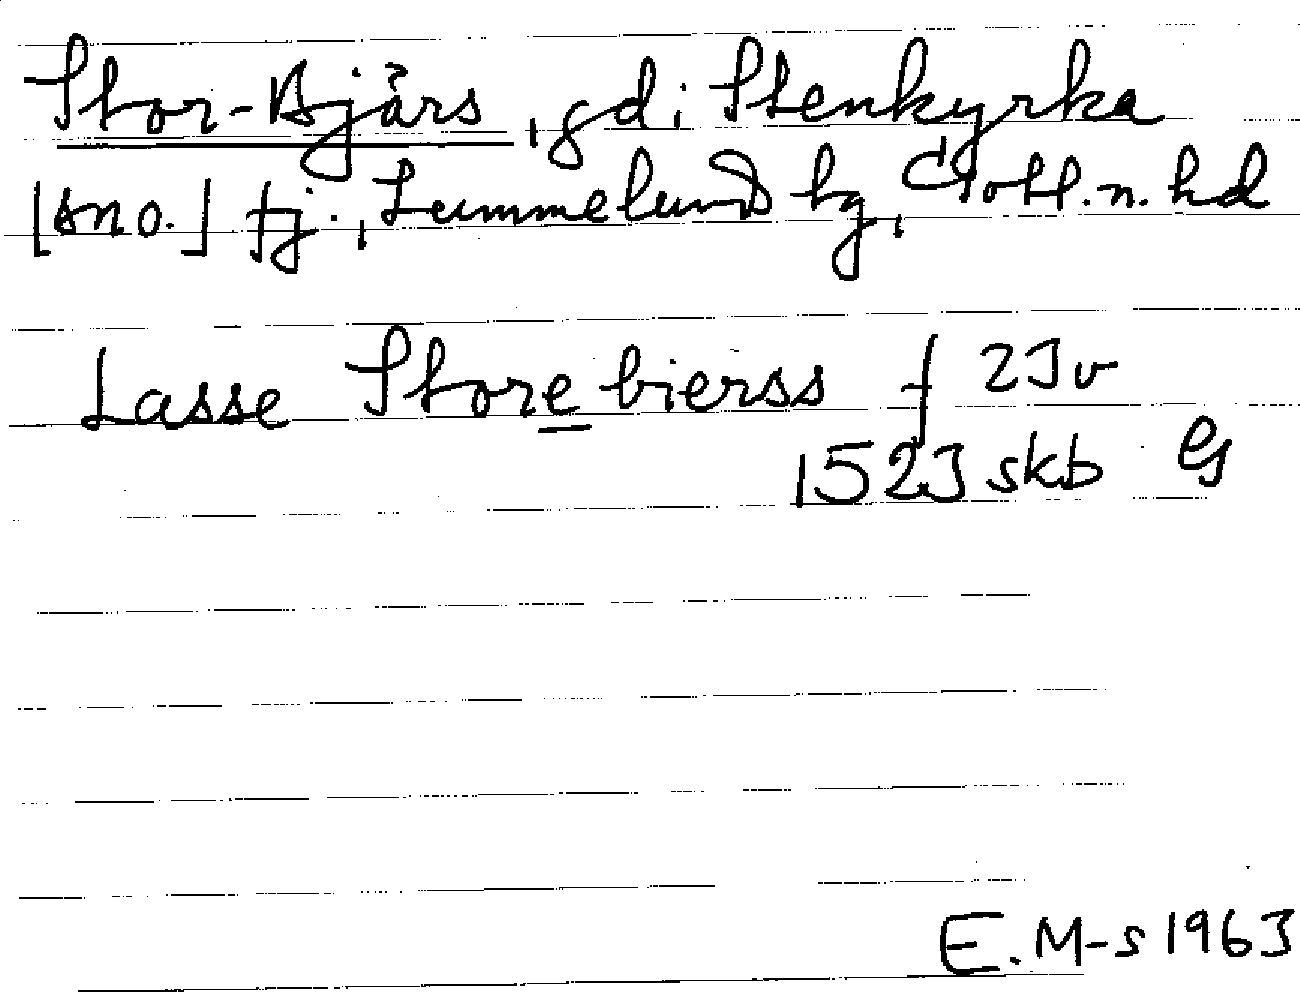 Stor-Bjärs, gd i Stenkyrka
[sno.] tj., Lummelund tg, Gotl. n. hd
Lasse Storebierss f 23v
1523 skb G
E. M-s 1963